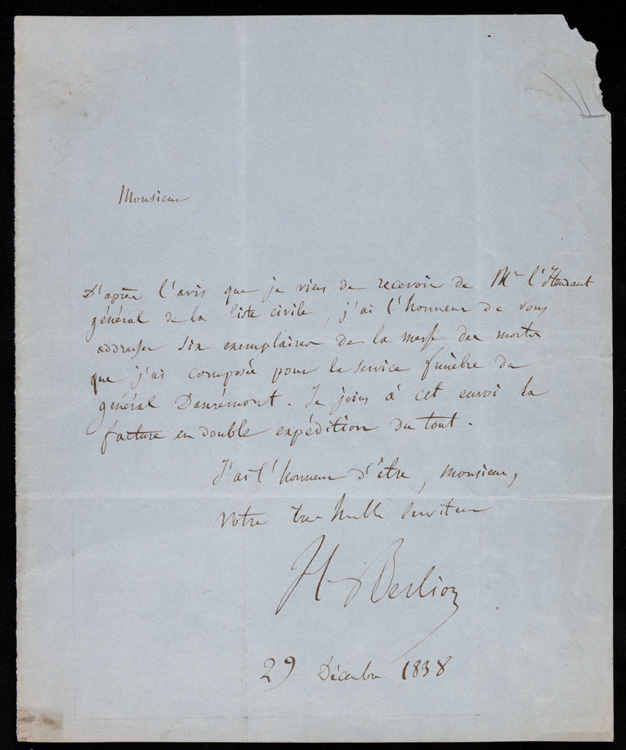 Monsieur
D'après l'avis que je viens de recevoir de Mr l'Intendant
général de la liste civile, j'ai l'honneur de vous
addresser six exemplaires de la messe des morts
que j'ai composée pour le service funèbre du
général Danrémont. Je joins à cet envoi la
facture en double expédition du tout.
J'ai l'honneur d'être, monsieur,
votre très humble serviteur
H. Berlioz
29 Décembre 1838